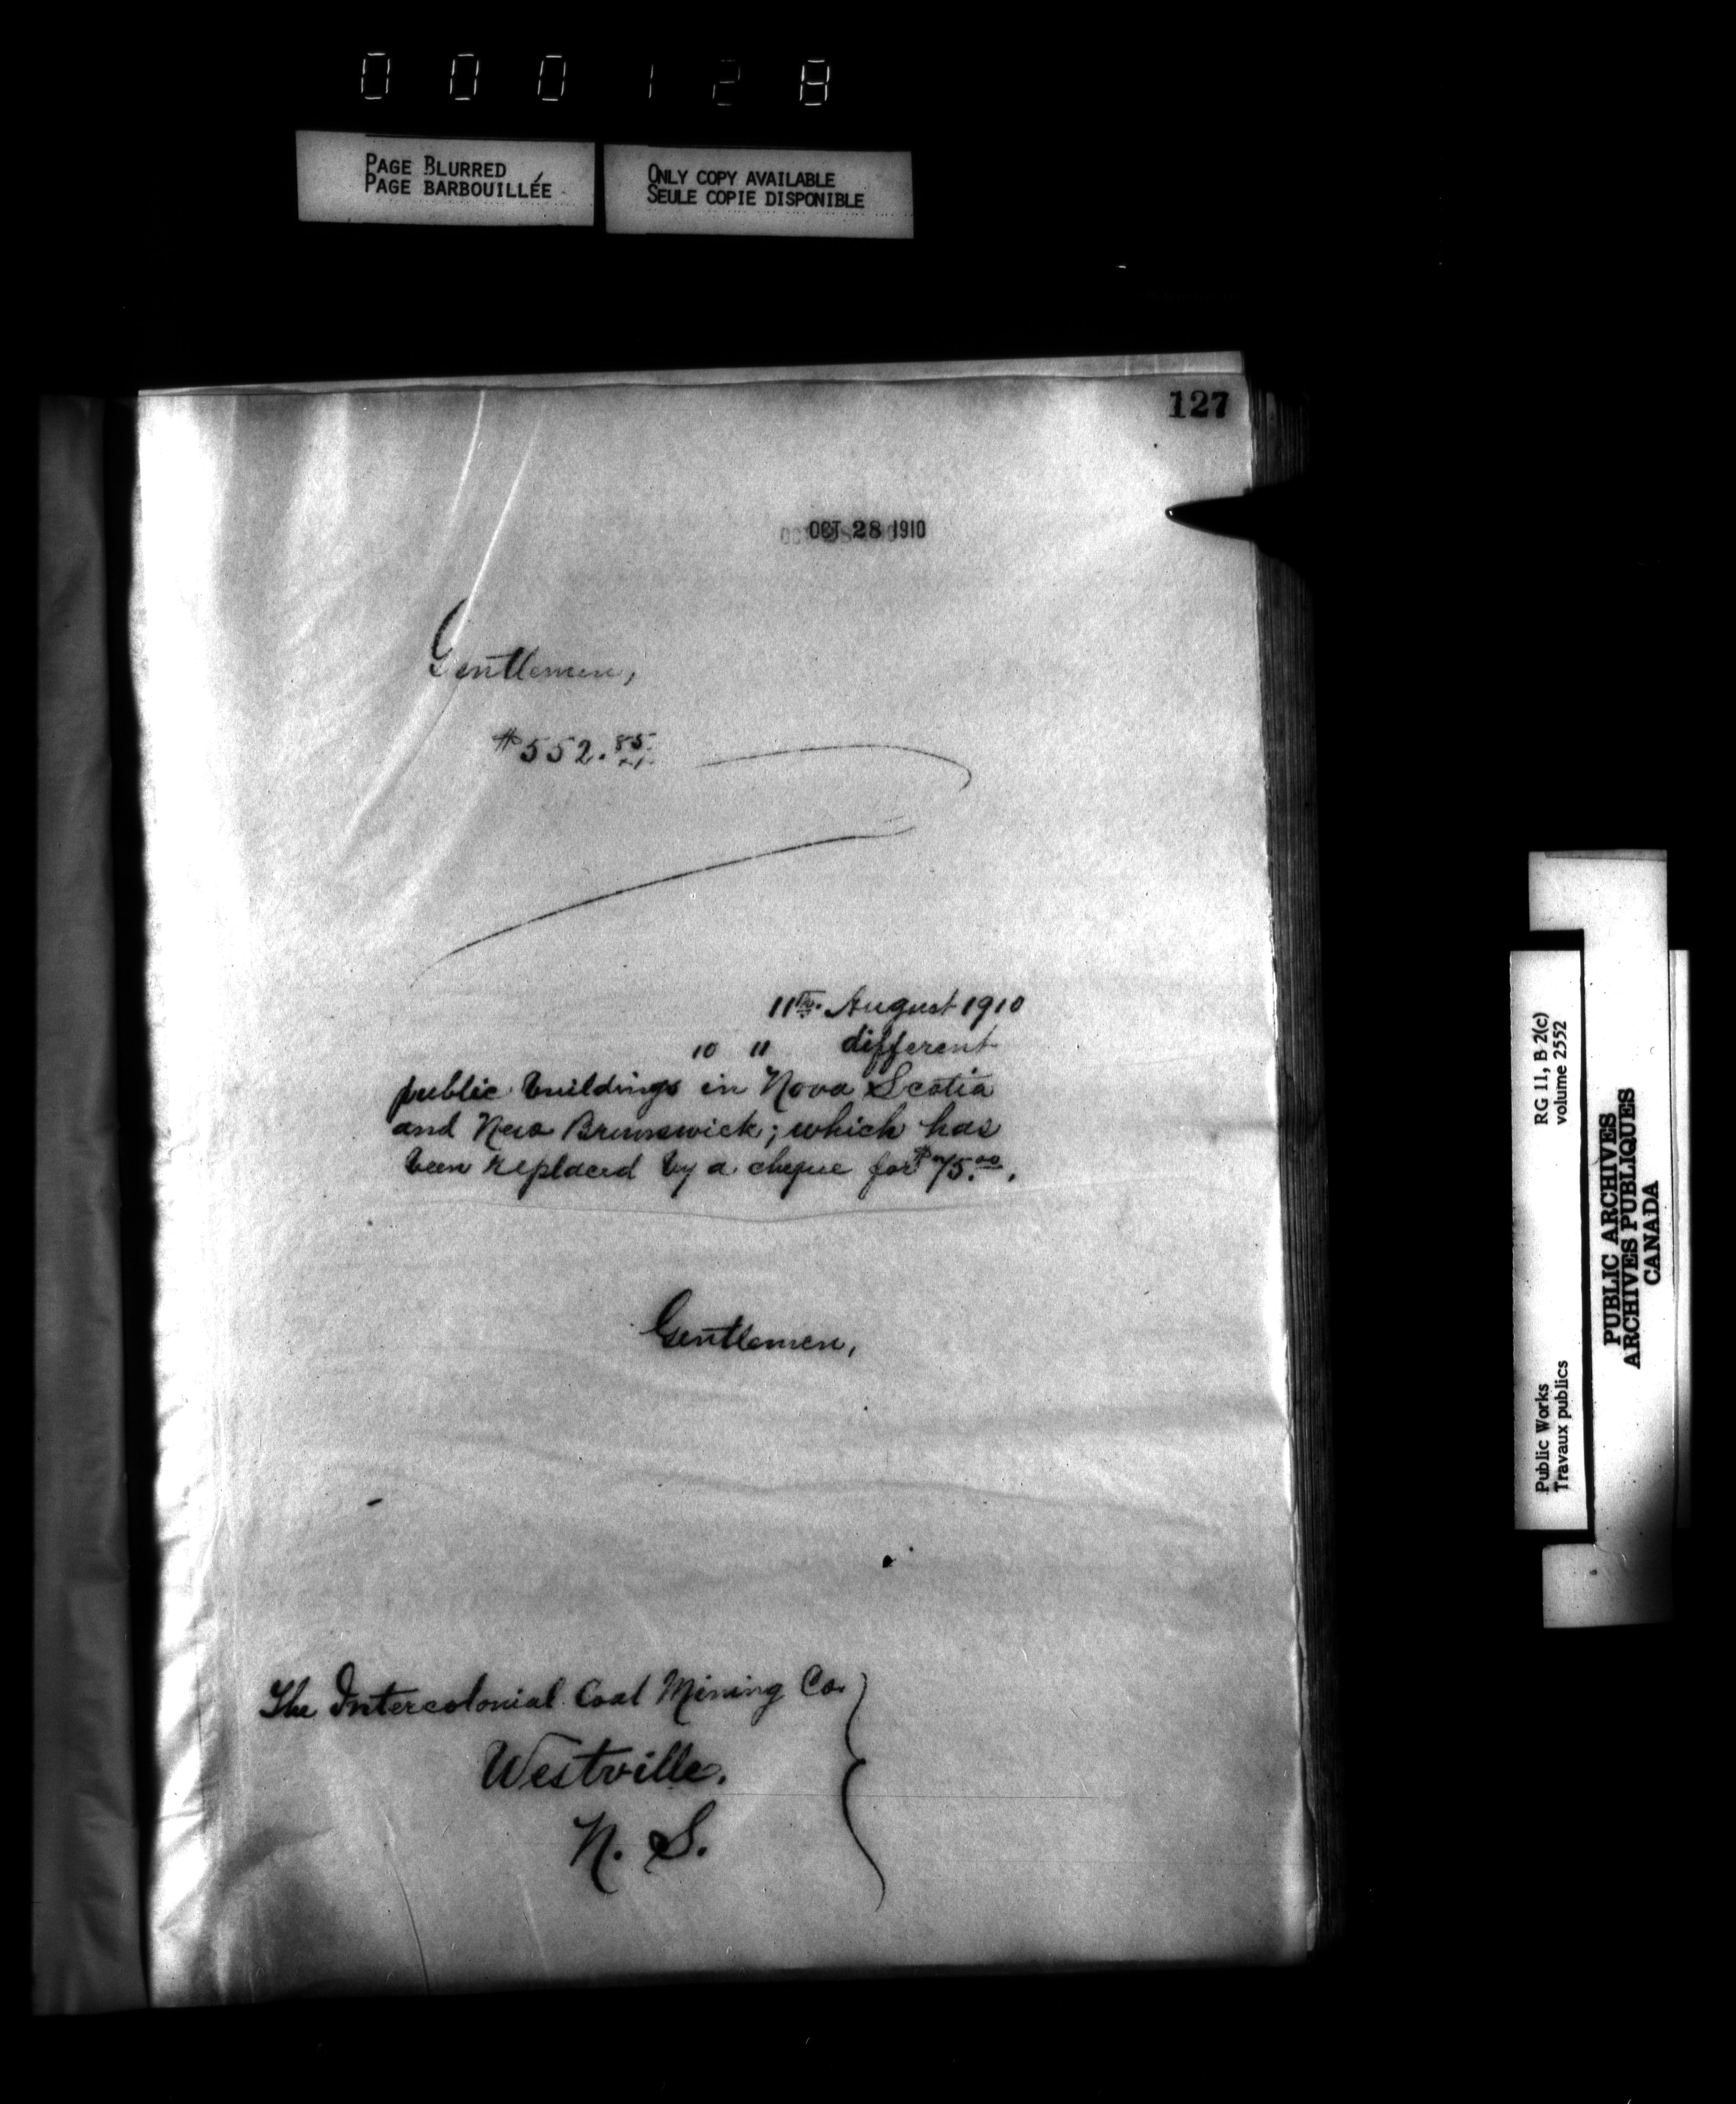 000128
PAGE BLURRED
PAGE BARBOUILLÉE
ONLY COPY AVAILABLE
SEULE COPIE DISPONIBLE
127
OCT 28 1910
Gentlemen,
$552.85
11th August 1910
10 " different
public buildings in Nova Scotia
and New Brunswick; which has
been replaced by a cheque for $75.00.
Gentlemen,
The Intercolonial Coal Mining Co.
Westville.
N. S.
Public Works RG 11, B 2(c)
Travaux publics volume 2552
PUBLIC ARCHIVES
ARCHIVES PUBLIQUES
CANADA